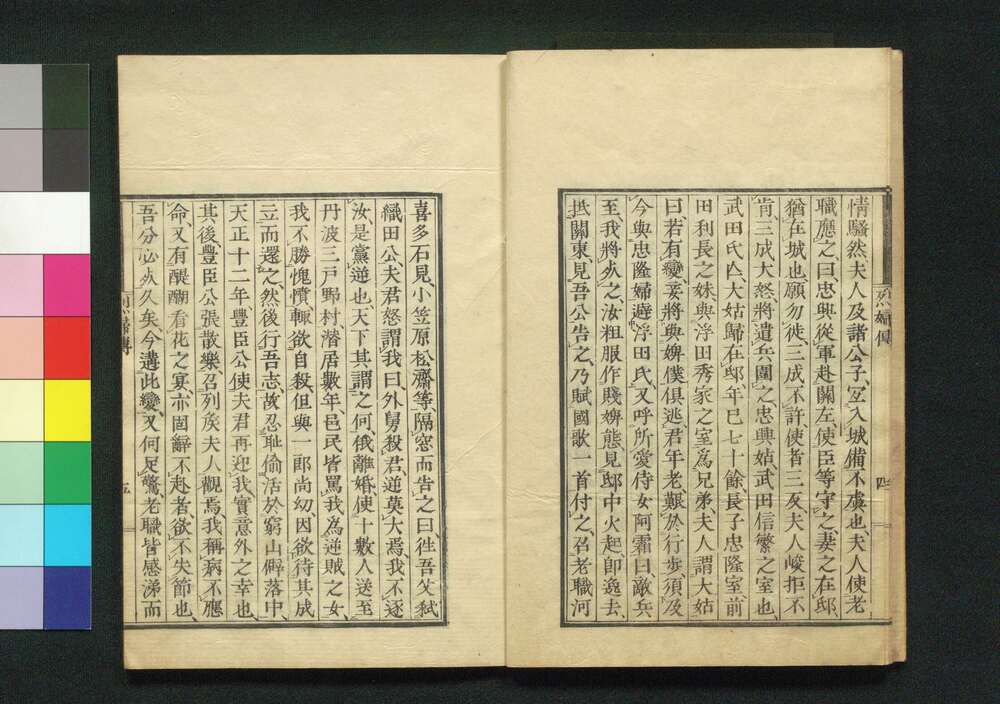 情騷然夫人及諸公子、宐入城備不虞也、夫人使老
職應之曰忠興從軍赴關左、使臣等守之妻之在邸、
猶在城也、願勿徙、三成不許、使者三反、夫人峻拒不
肯、三成大怒、將遣兵圍之、忠興姑武田信繁之室也、
武田氏亾、大姑歸在邸、年已七十餘、長子忠隆室、前
田利長之妹、與浮田秀家之室為兄弟、夫人謂大姑
曰、若有變、妾將與婢僕俱逃、君年老艱於行步、須及
今與忠隆婦避浮田氏、又呼所愛侍女阿霜曰、敵兵
至、我將死之、汝粗服作賤婢態、見邸中火起、卽逸去、
抵關東、見吾公告之、乃賦國歌一首付之、召老職河
烈婦傳
四
喜多石見、小笠原松齋等、隔窓而告之曰、徃吾父弑
織田公、夫君怒謂我曰、外舅殺君、逆莫大焉、我不逐
汝、是黨逆也、天下其謂之何、俄離婚、使十數人送至
丹波三戸野村、潛居數年、邑民皆罵我為逆賊之女、
我不勝愧憤、輒欲自殺、但與一郎尚幼、因欲待其成
立而還之、然後行吾志、故忍耻偷活於窮山僻落中、
天正十二年、豐臣公使夫君再迎我、實意外之幸也、
其後、豐臣公張散樂、召列矦夫人觀焉、我稱病不應
命、又有醍醐看花之宴、亦固辭不赴者、欲不失節也、
吾分必死久矣、今遘此變、又何足驚、老職皆感涕而
烈婦傳
五